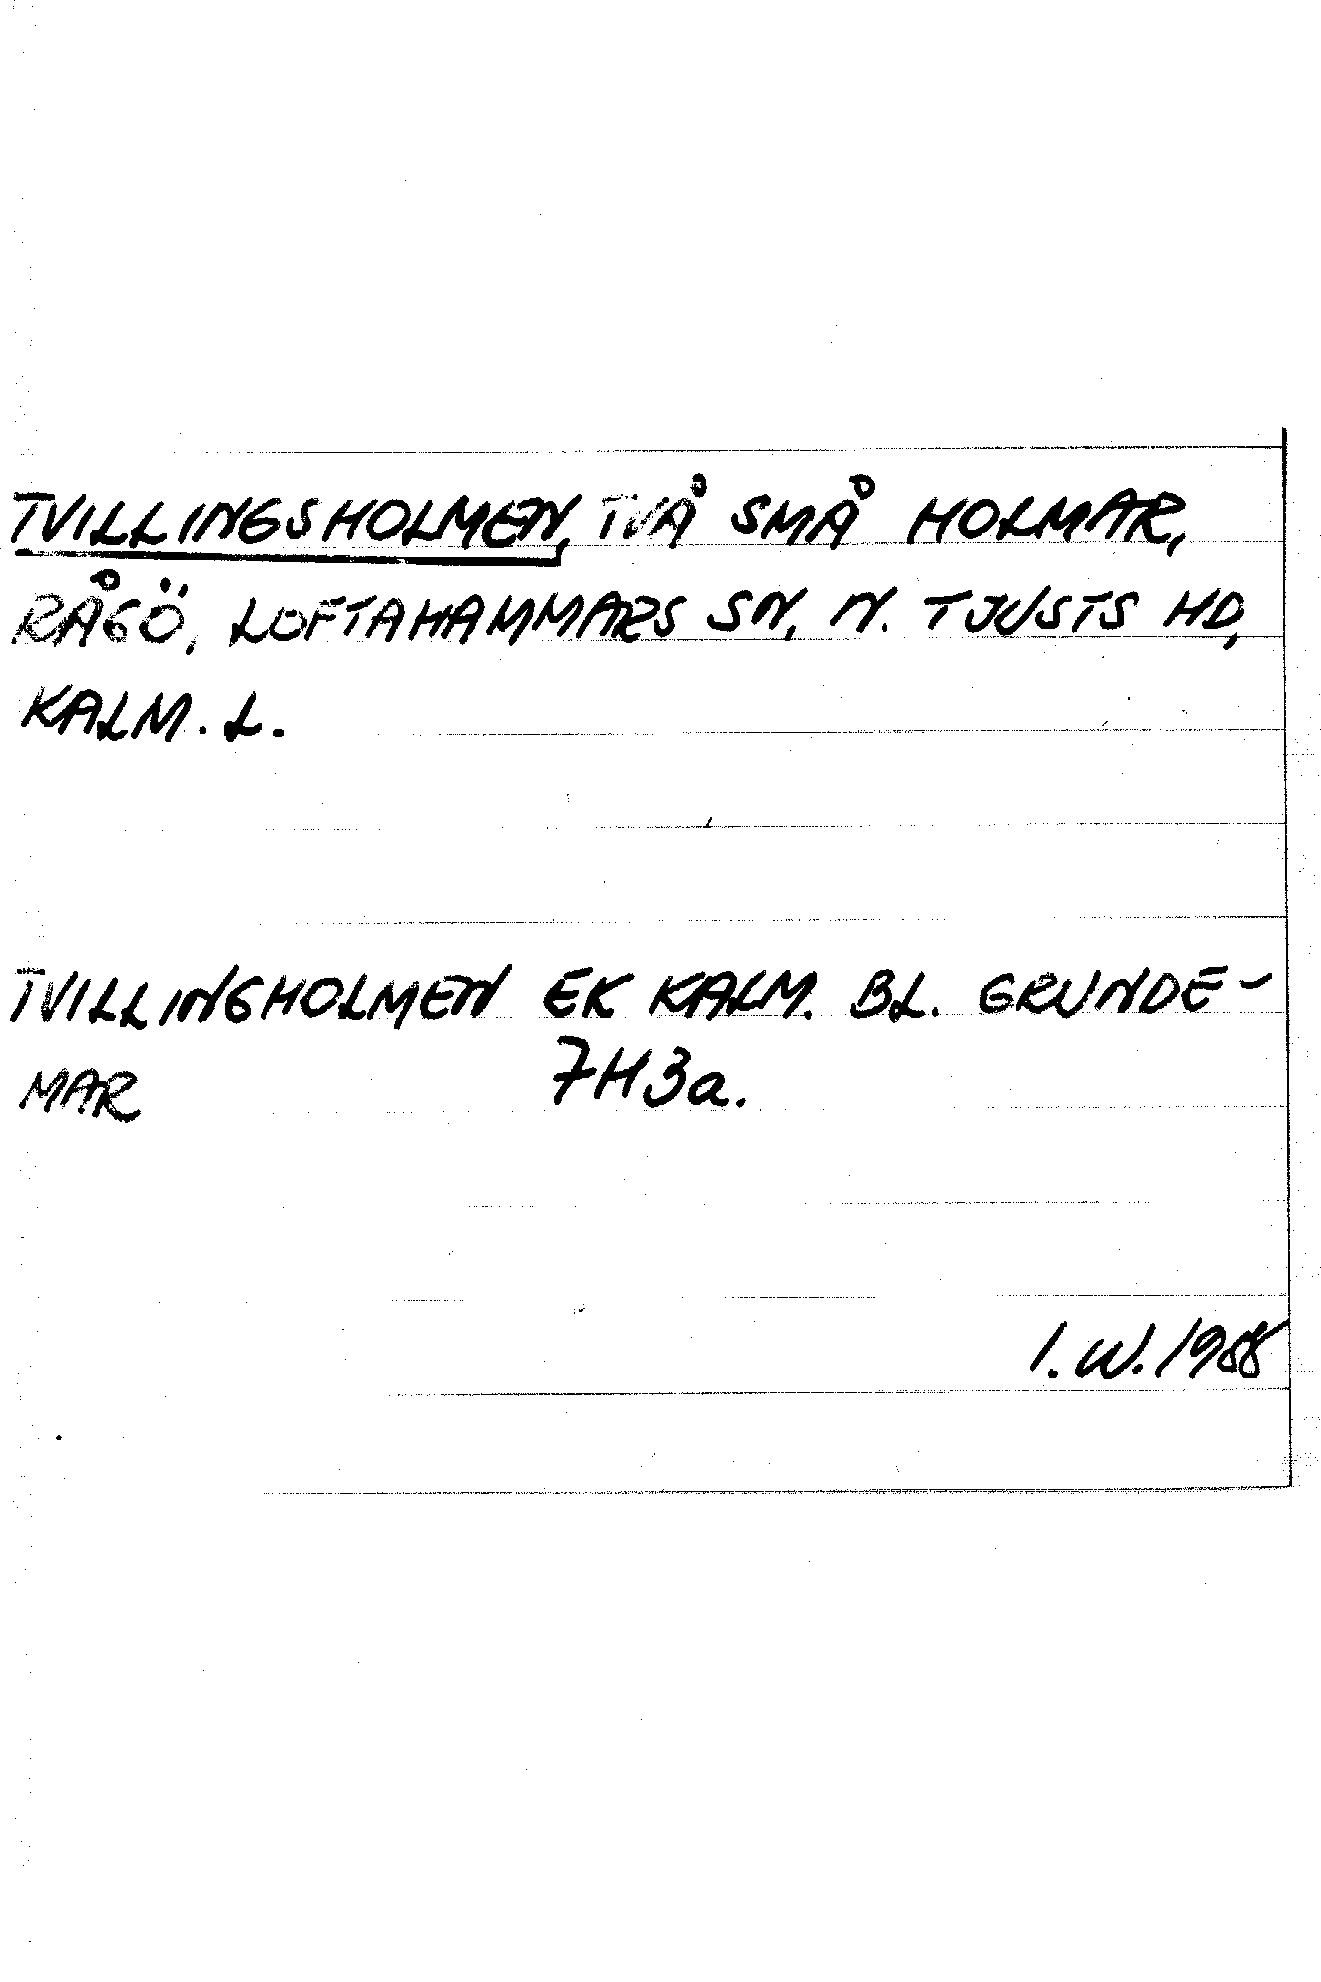 TVILLINGSHOLMEN, TVÅ SMÅ HOLMAR,
RÅGÖ, LOFTAHAMMARS SN, N. TJUSTS HD,
KALM. L.
TVILLINGHOLMEN EK KALM. BL. GRUNDE-
MAR 7H3a.
I.W. 1988